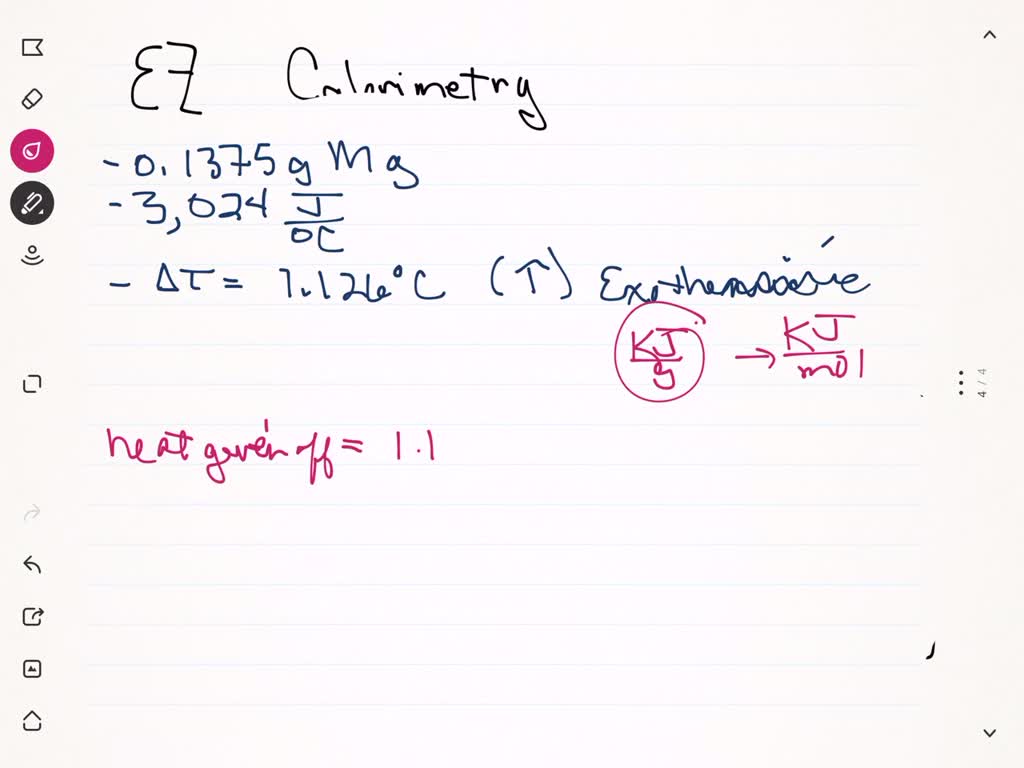 EZ Calorimetry
- 0.1375 g Mg
- 3,024 J/°C
- ΔT = 1.126°C (↑) Exothermic
KJ/g → KJ/mol
heat given off = 1.1
4 / 4